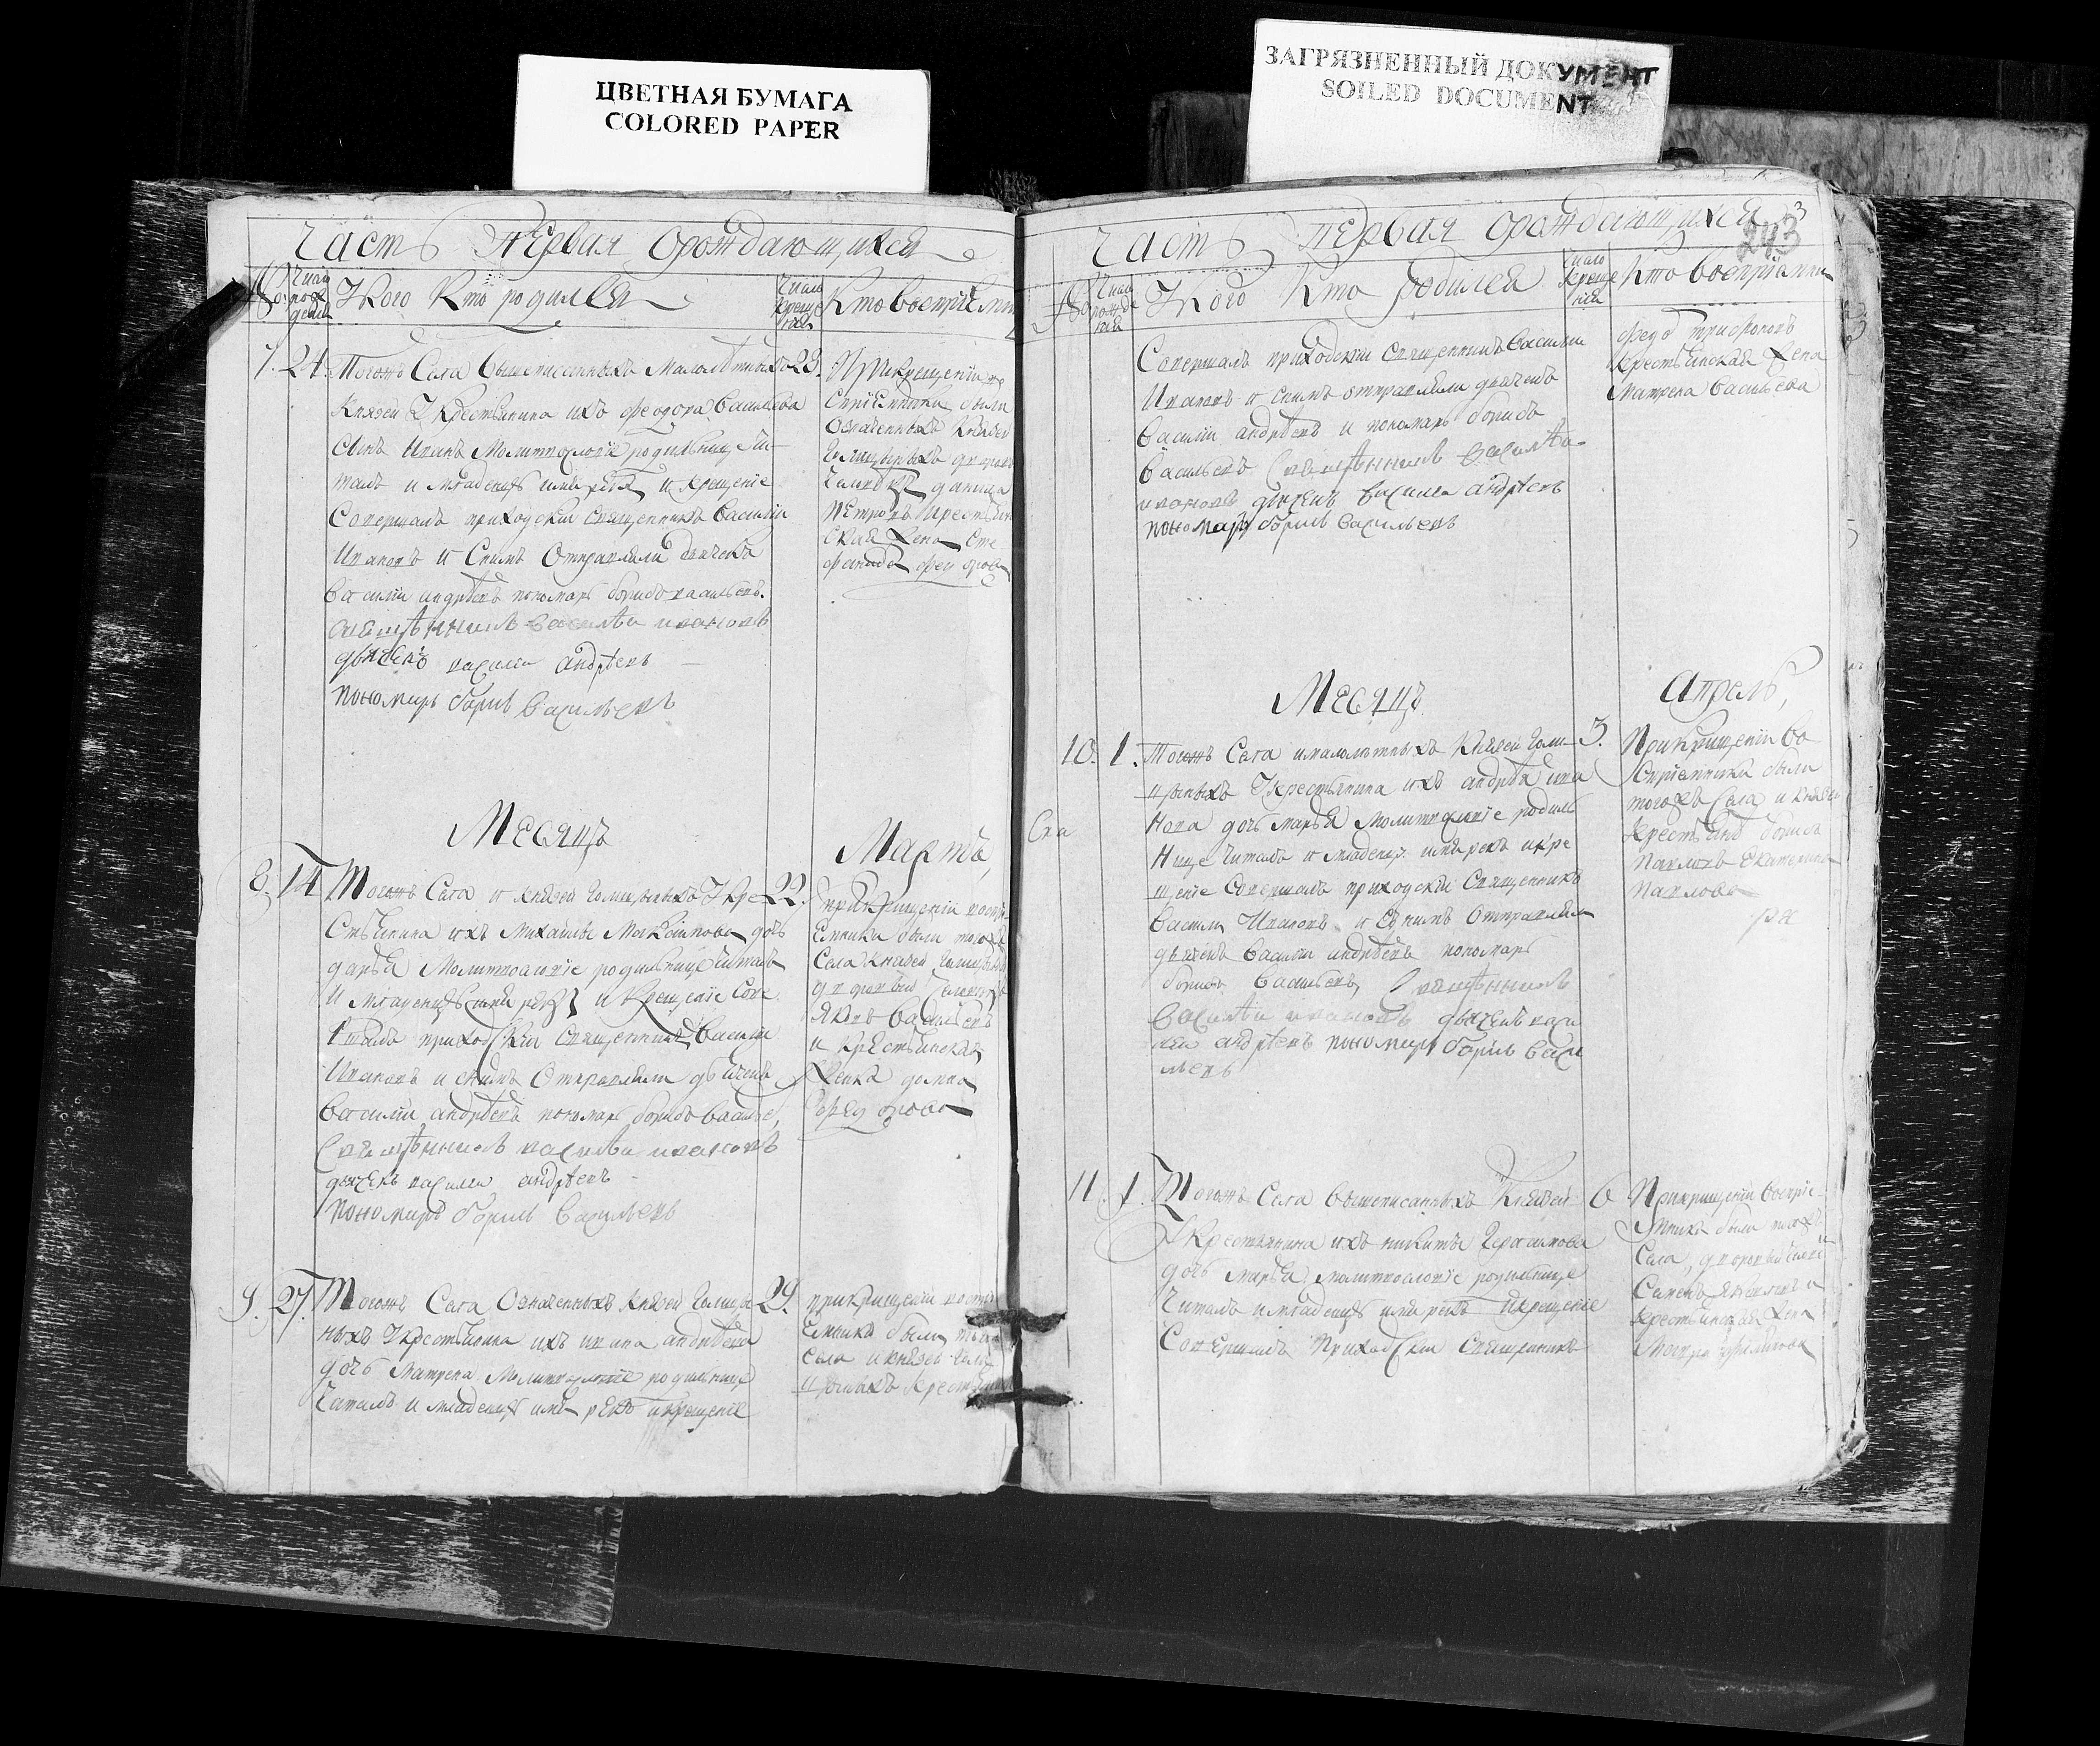 ЦВЕТНАЯ БУМАГА
COLORED PAPER
ЗАГРЯЗНЕННЫЙ ДОКУМЕНТ
SOILED DOCUMENT
Часть первая орождающихся
Укого Кто родился
Кто восприемни
7. 24. Тогожъ Села вышеписанныхъ Малолѣтныхъ 23.
Князей Укрестьянина ихъ Феодора Васильева
Сынъ Иванъ Молитвословіе родильницѣ чи
талъ и младенцу имя рекъ и крещеніе
Совершалъ приходскій священникъ Василий
Ивановъ и Снимъ Отправляли дьячекъ
Василий андрѣевъ пономарь борисъ васильевъ.
священникъ василѣи ивановъ
дьячекъ василеи андрѣевъ
пономарь борисъ васильевъ
При крещеніи во
спріемники были
Означенныхъ Князей
Голицыныхъ дворовы
человѣкъ данила
Петровъ крестьян
ская жена Сте
фанида Феодорова
Месяцъ
Мартъ
8. 14 Тогожъ Села и князей Голицыныхъ Укре 22.
стьянина ихъ Михайлы дочь
дарья Молитвословіе родильнице читалъ
и младенцу имя рекъ и крещеніе Сове
ршалъ приходскии священникъ василеи
Ивановъ и снимъ Отправляли дьячекъ
василии андрѣевъ пономарь борисъ василье
священникъ василѣи ивановъ
дьячекъ василеи андрѣевъ
пономарь борисъ васильевъ
прикрещеніи воспрі
емники были тогожъ
Села князей Голицыныхъ
дворовыи человекъ
Яковъ васильевъ
и крестьянская
Женка домна
Федорова
9. 27. Тогожъ Села Означенныхъ князей Голицы 29.
ныхъ Укрестьянина ихъ ивана андрѣева
дочь Матрена Молитвословіе родильнице
Читалъ и младенцу имя рекъ и крещеніе
прикрещеніи воспрі
емники были тогожъ
села и князей Голи
цыныхъ крестьянинъ
Часть первая орождающихся
243
Укого Кто родился
Кто воспріемни
Совершалъ приходскіи священникъ василии
Ивановъ и снимъ отправляли дьячекъ
василии андрѣевъ и пономарь борисъ
васильевъ священникъ василѣи
ивановъ дьячекъ василеи андрѣевъ
пономарь борисъ васильевъ
крестьянская жена
Матрена васильева
Месяцъ
Апрель,
10. 1. Тогожъ Села ималолѣтныхъ Князей Голи 3.
цыныхъ Укрестьянина ихъ андрѣя ива
нова дочь марья Молитвословіе родиль
нице читалъ и младенцу имя рекъ икре
щеніе Совершалъ приходскіи Священникъ
василии Ивановъ и снимъ отправляли
дьячекъ василии андрѣевъ пономарь
борисъ васильевъ священникъ
василѣи ивановъ дьячекъ васи
леи андрѣевъ пономарь борисъ васи
льевъ
Прикрещеніи во
спріемники были
тогожъ Села и князей
крестьянъ борисъ
павловъ екатерина
павлова
11. 1. Тогожъ Села вышеписанныхъ Князей 6
Укрестьянина ихъ никиты Герасимова
дочь марья молитвословіе родильнице
Читалъ имладенцу имя рекъ икрещеніе
Совершалъ Приходскіи Священникъ
Прикрещеніи воспріе
мники были тогожъ
Села, дворовыи
Семенъ Яковлевъ и
крестьянская жена